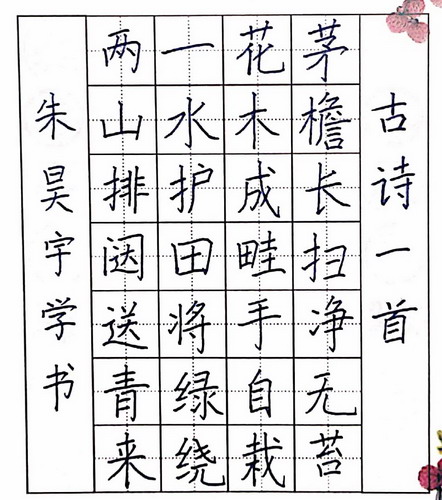 古诗一首
茅檐长扫净无苔
花木成畦手自栽
一水护田将绿绕
两山排闼送青来
朱昊宇学书